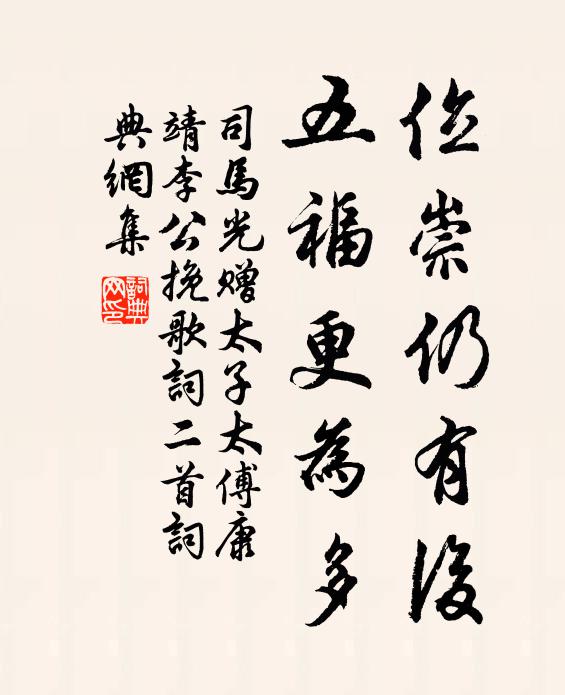 位崇仍有後
五福更為多
司馬光贈太子太傅康
靖李公挽歌詞二首詞
典網集
詞典
网印